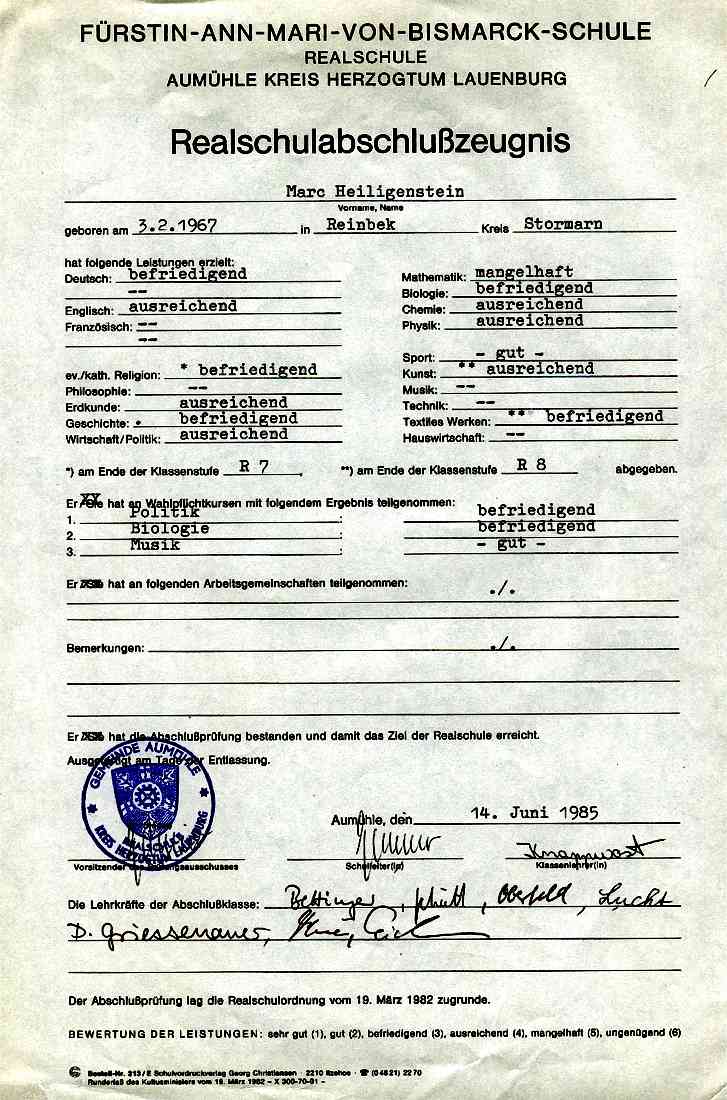 FÜRSTIN-ANN-MARI-VON-BISMARCK-SCHULE
REALSCHULE
AUMÜHLE KREIS HERZOGTUM LAUENBURG
Realschulabschlußzeugnis
Marc Heiligenstein
Vorname, Name
geboren am 3.2.1967 in Reinbek Kreis Stormarn
hat folgende Leistungen erzielt:
Deutsch: befriedigend
--
Englisch: ausreichend
Französisch: --
--
ev./kath. Religion: * befriedigend
Philosophie: --
Erdkunde: ausreichend
Geschichte: befriedigend
Wirtschaft/Politik: ausreichend
Mathematik: mangelhaft
Biologie: befriedigend
Chemie: ausreichend
Physik: ausreichend
Sport: - gut -
Kunst: ** ausreichend
Musik: --
Technik: --
Textiles Werken: ** befriedigend
Hauswirtschaft: --
*) am Ende der Klassenstufe R 7, **) am Ende der Klassenstufe R 8 abgegeben.
Er/Sie hat an Wahlpflichtkursen mit folgendem Ergebnis teilgenommen:
1. Politik : befriedigend
2. Biologie : befriedigend
3. Musik : - gut -
Er/Sie hat an folgenden Arbeitsgemeinschaften teilgenommen: ./.
Bemerkungen: ./.
Er/Sie hat die Abschlußprüfung bestanden und damit das Ziel der Realschule erreicht.
Ausgefertigt am Tage der Entlassung.
GEMEINDE AUMÜHLE
REALSCHULE
KREIS HERZOGTUM LAUENBURG
Aumühle, den 14. Juni 1985
Knappwost
Vorsitzender des Prüfungsausschusses Schulleiter(in) Klassenlehrer(in)
Die Lehrkräfte der Abschlußklasse: Bettinger, Schütt, Oberfeld, Lucht
D. Griessenauer,
Der Abschlußprüfung lag die Realschulordnung vom 19. März 1982 zugrunde.
BEWERTUNG DER LEISTUNGEN: sehr gut (1), gut (2), befriedigend (3), ausreichend (4), mangelhaft (5), ungenügend (6)
Bestell-Nr. 213/E Schulvordruckverlag Georg Christiansen · 2210 Itzehoe · ☎ (0 48 21) 22 70
Runderlaß des Kultusministers vom 19. März 1982 – X 300-70-91 –